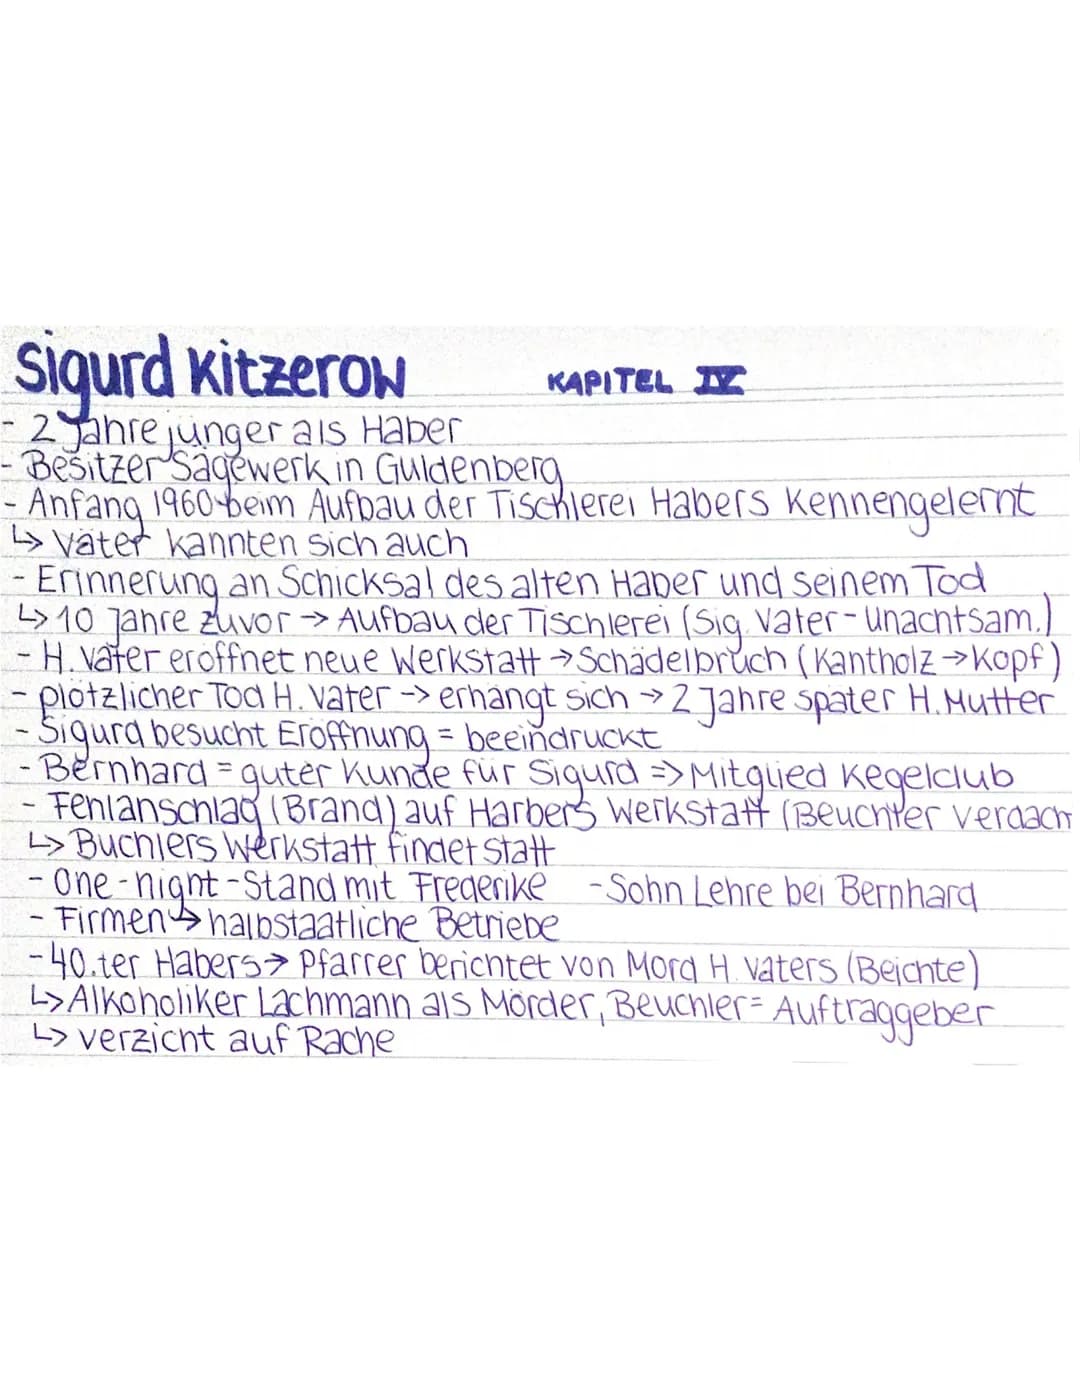 Sigurd Kitzerow KAPITEL IV
- 2 Jahre jünger als Haber
- Besitzer Sägewerk in Guldenberg
- Anfang 1960 beim Aufbau der Tischlerei Habers Kennengelernt
↳ Väter kannten sich auch
- Erinnerung an Schicksal des alten Haber und seinem Tod
↳ 10 Jahre zuvor → Aufbau der Tischlerei (Sig. Vater - Unachtsam.)
- H. Vater eröffnet neue Werkstatt → Schädelbruch (Kantholz → Kopf)
- plötzlicher Tod H. Vater → erhängt sich → 2 Jahre später H. Mutter
- Sigurd besucht Eröffnung = beeindruckt
- Bernhard = guter Kunde für Sigurd => Mitglied Kegelclub
- Fehlanschlag (Brand) auf Harbers Werkstatt (Beuchter verdäch
↳ Buchlers Werkstatt findet statt
- One-night-Stand mit Frederike - Sohn Lehre bei Bernhard
- Firmen → halbstaatliche Betriebe
- 40.ter Habers → Pfarrer berichtet von Mord H. Vaters (Beichte)
↳ Alkoholiker Lachmann als Mörder, Beuchler = Auftraggeber
↳ verzicht auf Rache